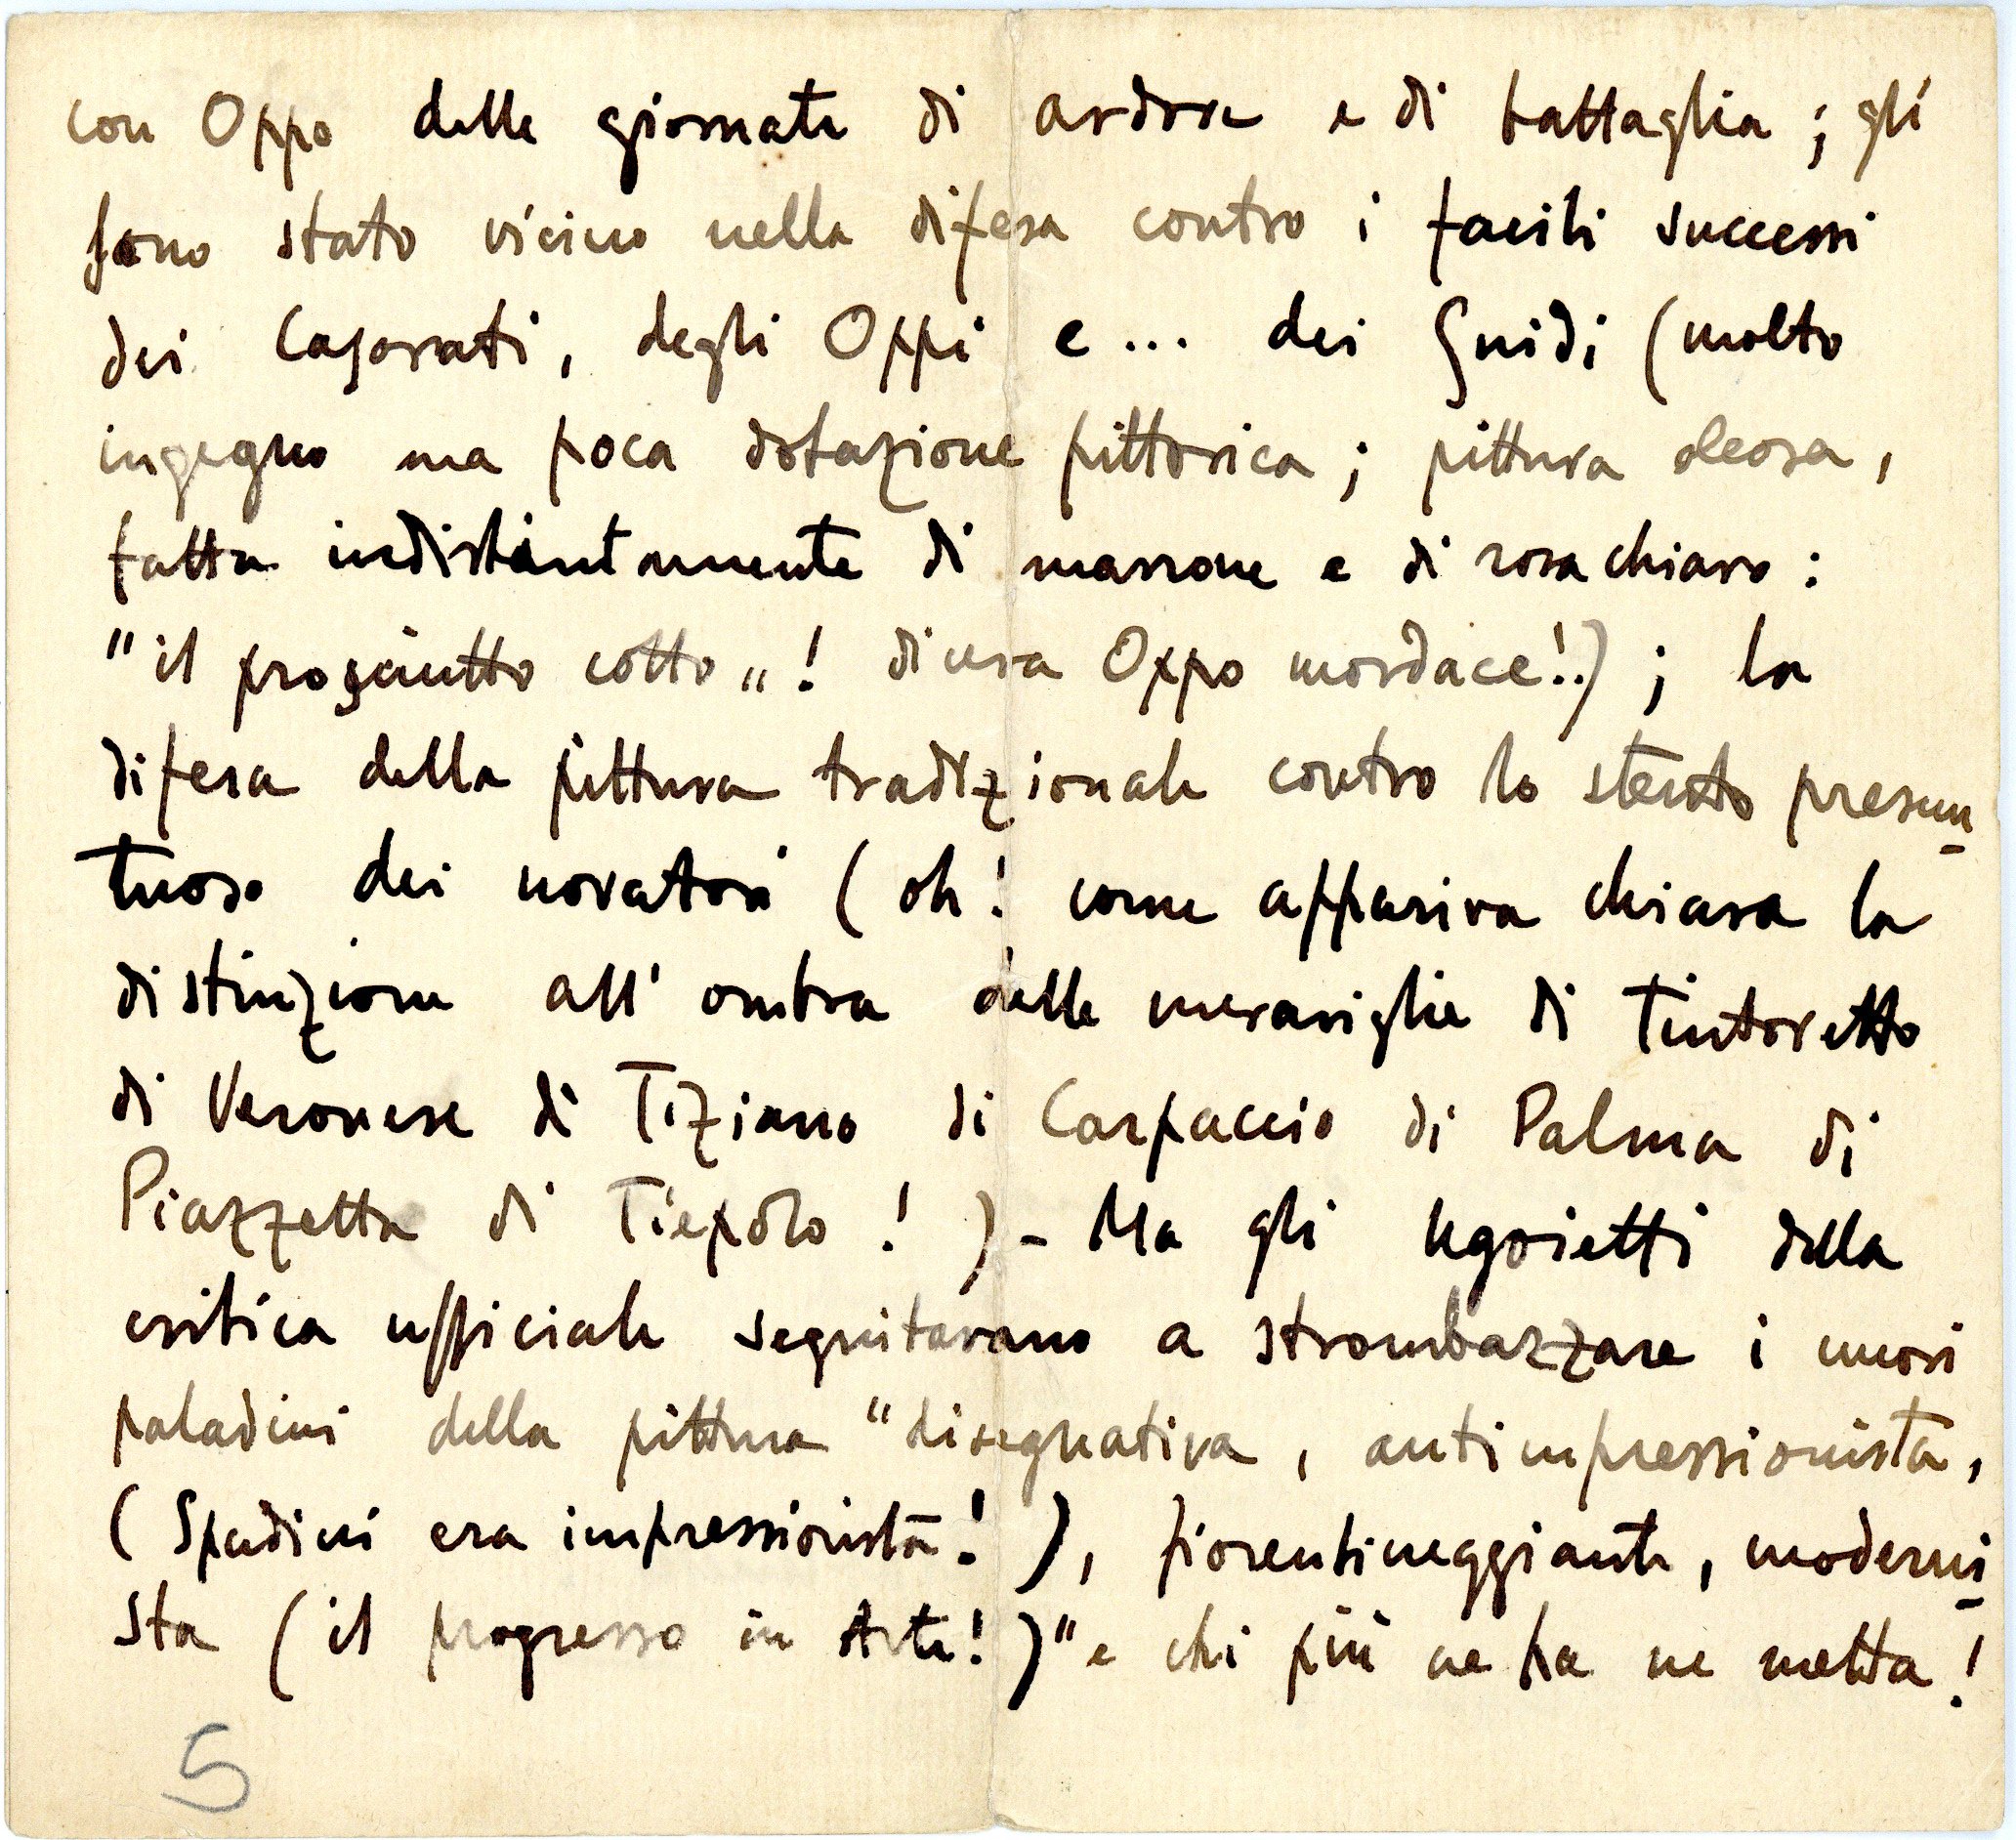 con Oppo delle giornate di ardore e di battaglia ; gli
sono stato vicino nella difesa contro i facili successi
dei Casorati, degli Oppi e ... dei Guidi (molto
ingegno ma poca dotazione pittorica ; pittura oleosa,
fatta indistintamente di marrone e di rosa chiaro :
"il prosciutto cotto„ ! diceva Oppo mordace!..) ; la
difesa della pittura tradizionale contro lo stento presun
tuoso dei novatori (oh! come appariva chiara la
distinzione all' ombra delle meraviglie di Tintoretto
di Veronese di Tiziano di Carpaccio di Palma di
Piazzetta di Tiepolo ! ) - Ma gli Ugoietti della
critica ufficiale seguitavano a strombazzare i nuovi
paladini della pittura "disegnativa, antimpressionista,
(Spadini era impressionista! ), fiorentineggiante, moderni
sta (il progresso in Arte! )" e chi più ne ha ne metta !
5